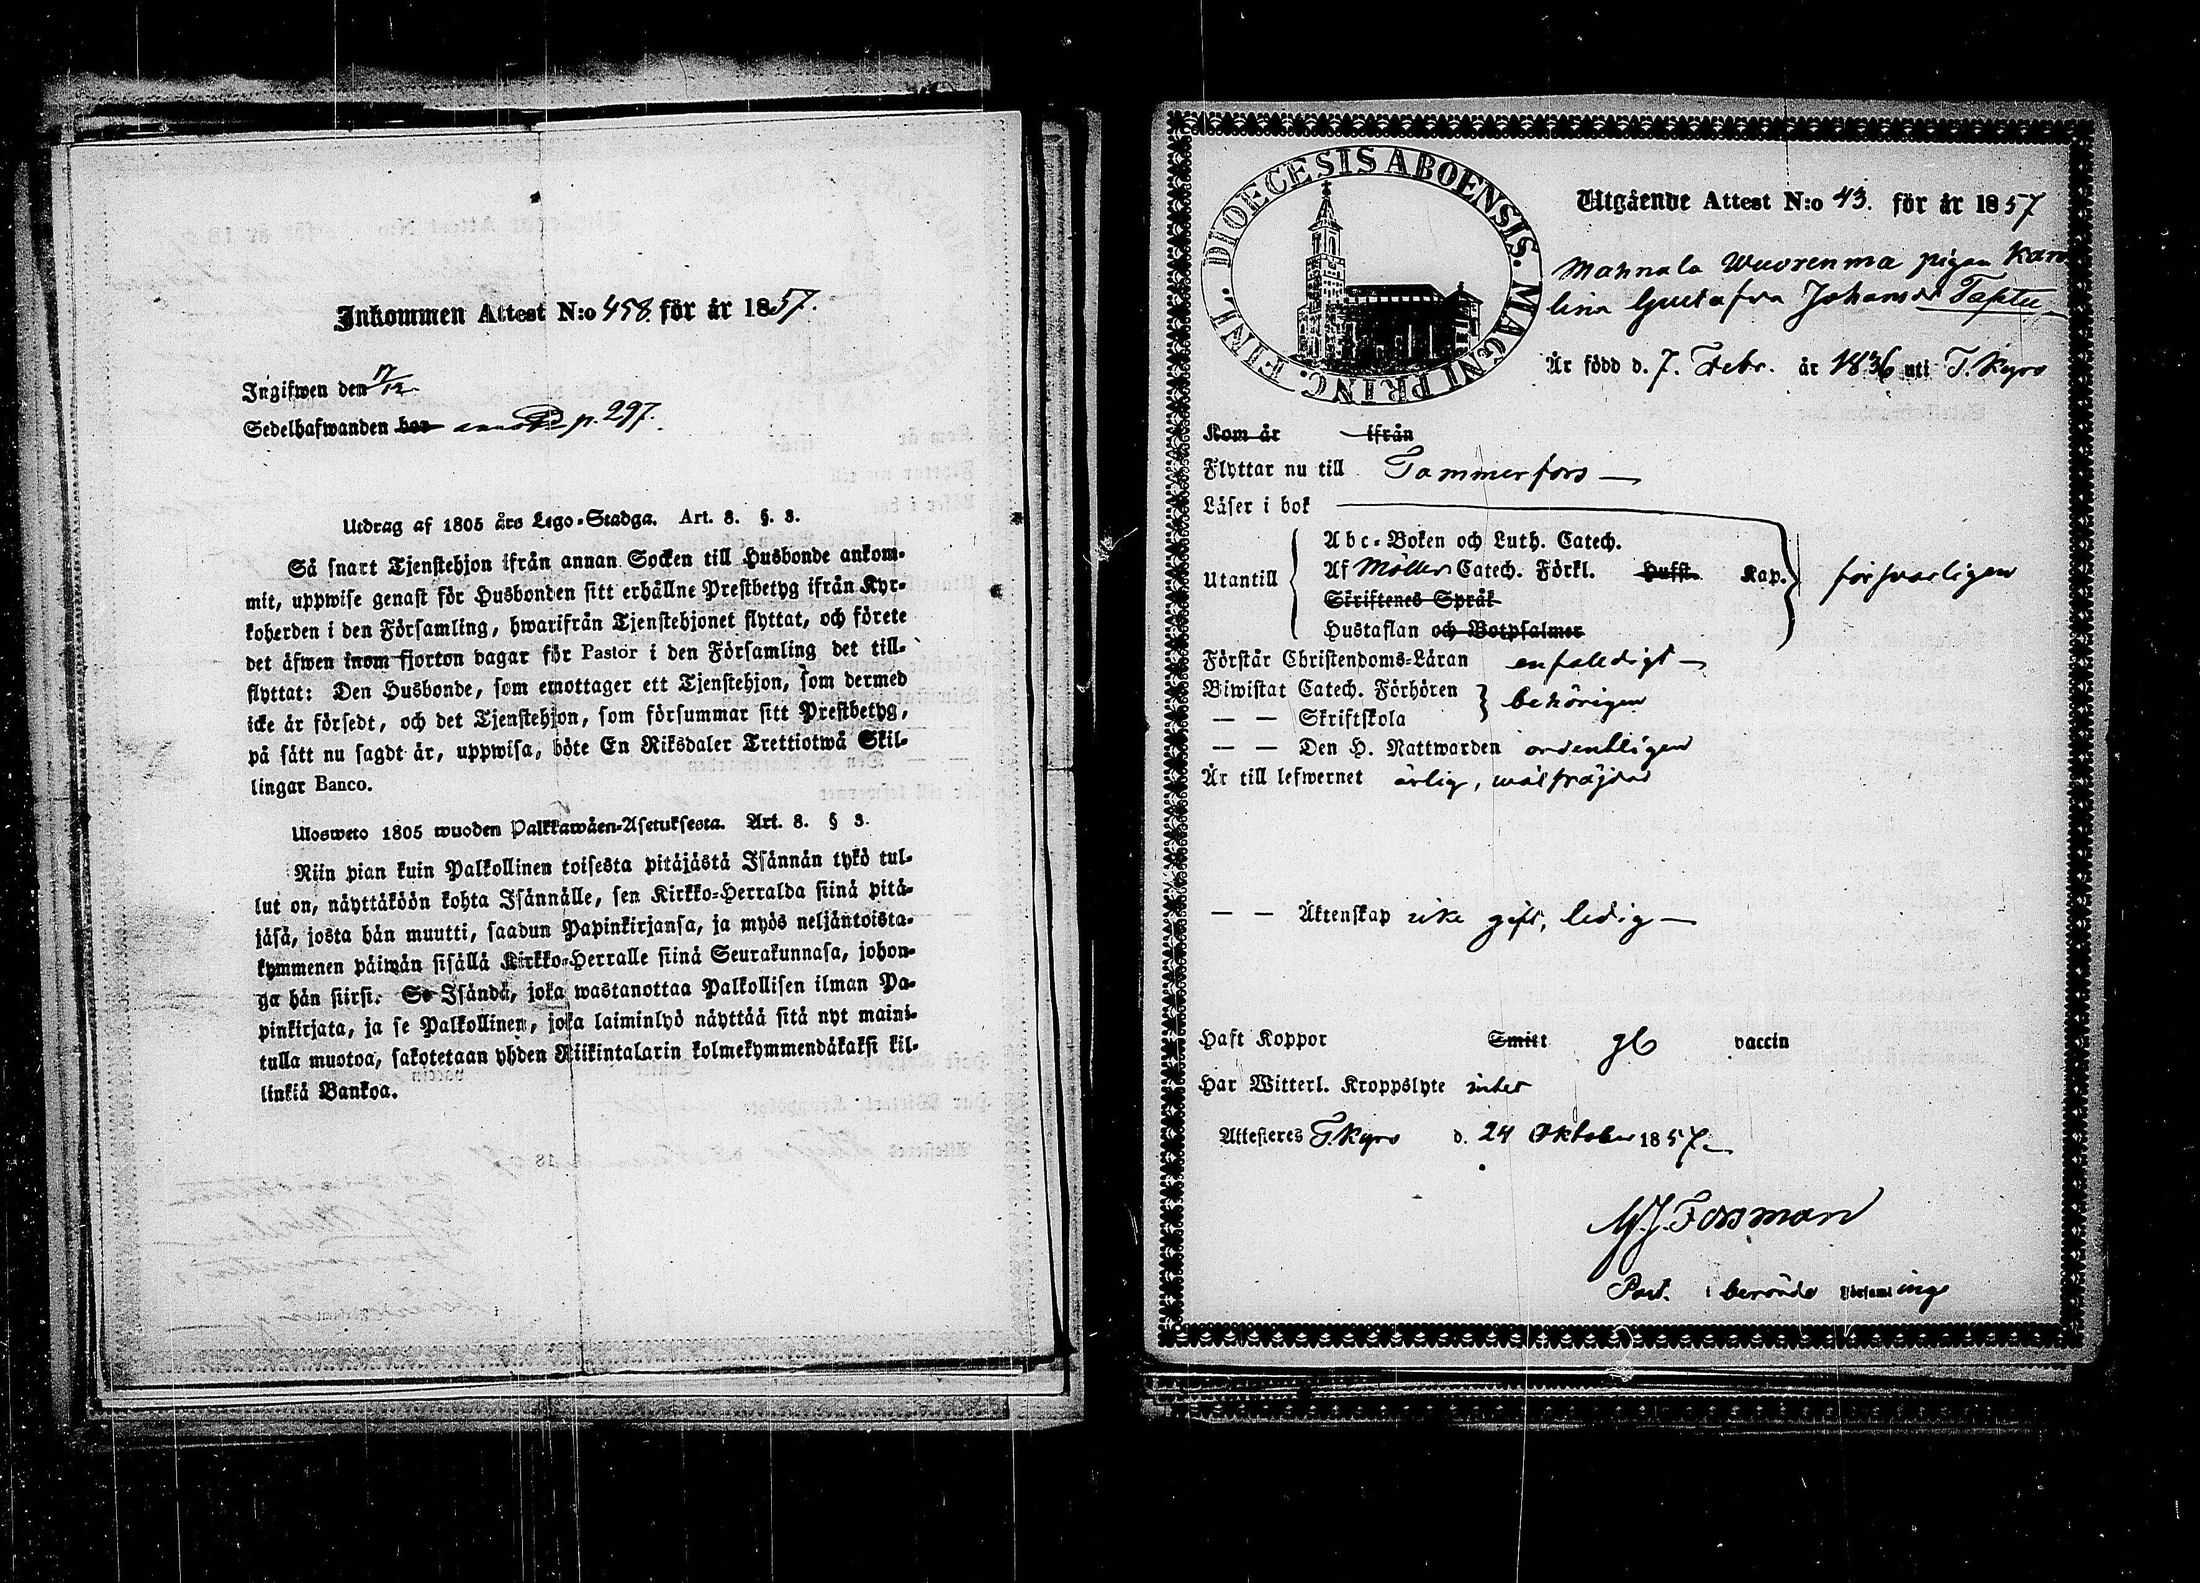 Inkommen Attest N:o 458. för år 1857.
Ingifwen den 17/12.
Sedelhafwanden bor p. 297.
Utdrag af 1805 års Lego-Stadga. Art. 8. §. 3.
Så snart Tjenstehjon ifrån annan Socken till Husbonde ankom-
mit, uppwise genast för Husbonden sitt erhållne Prestbetyg ifrån Kyr-
koherden i den Församling, hwarifrån Tjenstehjonet flyttat, och förete
det äfwen inom fjorton dagar för Pastor i den Församling det till-
flyttat: Den Husbonde, som emottager ett Tjenstehjon, som dermed
icke är försedt, och det Tjenstehjon, som försummar sitt Prestbetyg,
på sätt nu sagdt är, uppwisa, böte En Riksdaler Trettiotwå Skil-
lingar Banco.
Ulosweto 1805 wuoden Palkkawäen-Asetuksesta. Art. 8. § 3.
Niin pian kuin Palkollinen toisesta pitäjästä Isännän tykö tul-
lut on, näyttäköön kohta Isännälle, sen Kirkko-Herralda siinä pitä-
jäsä, josta hän muutti, saadun Papinkirjansa, ja myös neljäntoista-
kymmenen päiwän sisällä Kirkko-Herralle siinä Seurakunnasa, johon-
ga hän siirsi. Se Isändä, joka wastanottaa Palkollisen ilman Pa-
pinkirjata, ja se Palkollinen, joka laiminlyö näyttää sitä nyt maini-
tulla muotoa, sakotetaan yhden Riikintalarin kolmekymmendäkaksi kil-
linkiä Bankoa.
DIOECESIS ABOENSIS. MAGNI PRINC. FINL.
Utgående Attest N:o 43. för år 1857
Mahnala Wuorenma pigan Karo
lina Gustafva Johansdr Taftu
Är född d. 7. Febr. år 1836 uti T. Kyro
Kom år ifrån
Flyttar nu till Tammerfors
Läser i bok
Utantill
Abc-Boken och Luth. Catech.
Af Möllers Catech. Förkl. Hufst. Kap. försvarligen
Skriftenes Språk
Hustaflan och Botpsalmer
Förstår Christendoms-Läran enfaldigt
Biwistat Catech. Förhören behörigen
— — Skriftskola
— — Den H. Nattwarden ordentligen
Är till lefwernet ärlig, wälfräjdad
— — Äktenskap icke gift, ledig
Haft Koppor Smitt gb vaccin
Har Witterl. Kroppslyte intet
Attesteres T. Kyro d. 24 Oktober 1857
M. J. Forsman
Past. i berörde Församlings